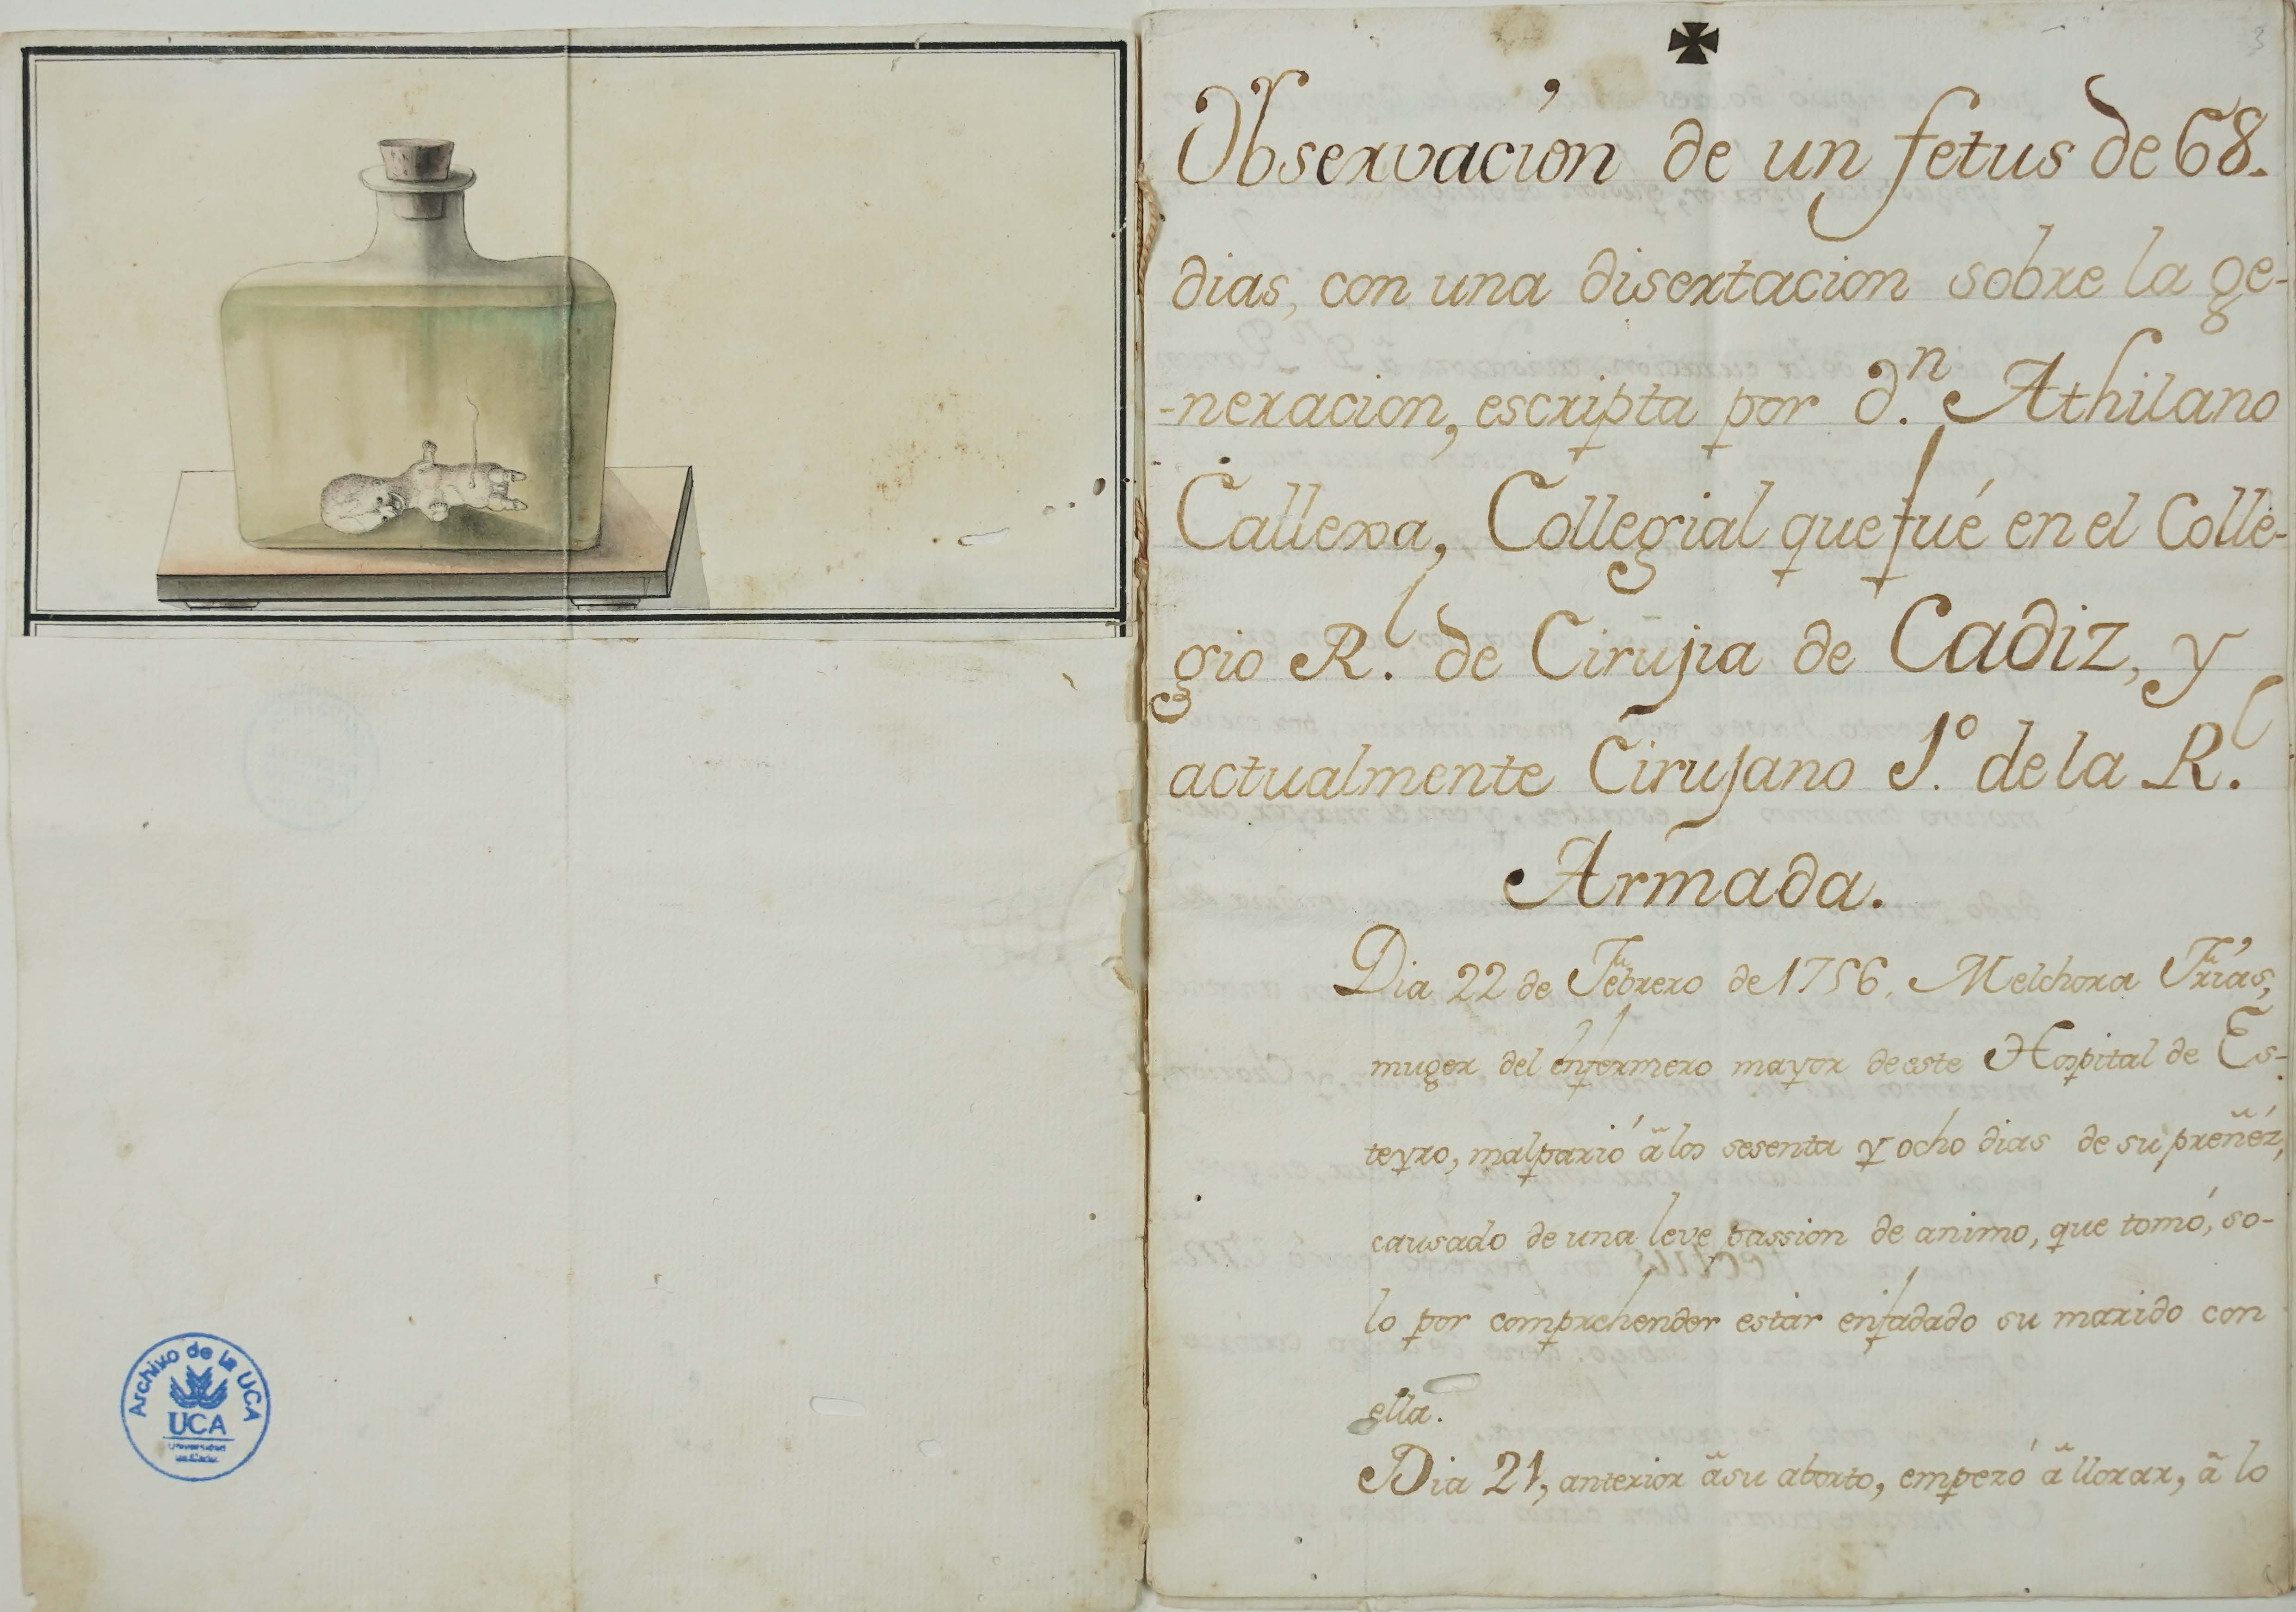 3
Observación de un fetus de 68.
dias, con una disertacion sobre la ge-
-neracion, escripta por dn. Athilano
Callexa, Collegial que fué en el Colle-
gio Rl. de Cirujia de Cadiz, y
actualmente Cirujano 1o. de la Rl.
Armada.
Dia 22 de Febrero de 1756. Melchora Frias,
muger del enfermero mayor de este Hospital de Es-
teyro, malparió â los sesenta y ocho dias de su preñéz,
causado de una leve passion de animo, que tomó, so-
lo por comprehender estar enfadado su marido con
ella.
Dia 21, anterior â su aborto, empezó â llorar, â lo
Archivo de la UCA
UCA
Universidad
de Cádiz